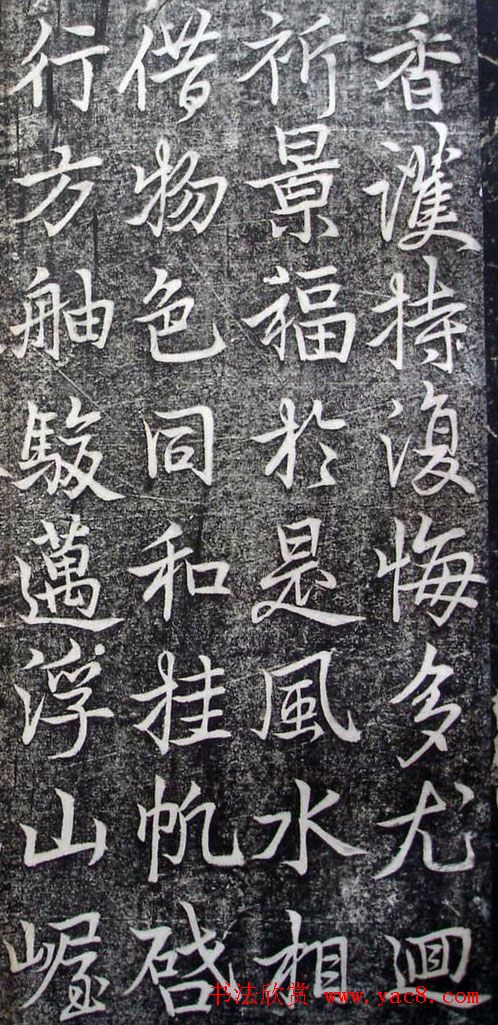 香護持復悔多尤迴
祈景福於是風水相
借物色同和挂帆啓
行方舳駿邁浮山崛
书法欣赏 www.yac8.com